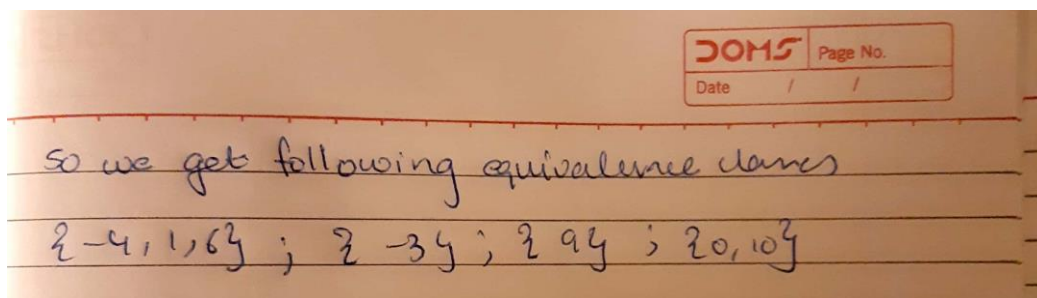 DOMS Page No.
Date / /
so we get following equivalence classes
{-4, 1, 6} ; {-3} ; {9} ; {0, 10}